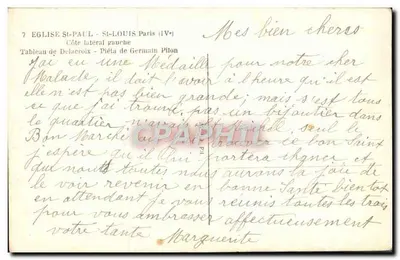 7 EGLISE St-PAUL - St-LOUIS Paris (IVe)
Côté latéral gauche
Tableau de Delacroix - Piéta de Germain Pilon
Mes bien cheres
J'ai eu une Médaille pour notre cher
Malade, il doit l'avoir à l'heure qu'il est
elle n'est pas bien grande; mais s'est tous
ce que j'ai trouvé, pas un bijoutier dans
le quartier n'avait seul le
Bon Marché ce bon Saint
j'espère qu'il lui portera et
qui nous toutes nous aurons la joie de
le voir revenir en bonne Santé bientot
en attendant je vous reunis toutes les trois
pour vous embrasser affectueusement
votre tante Marguerite
CPARPHIL